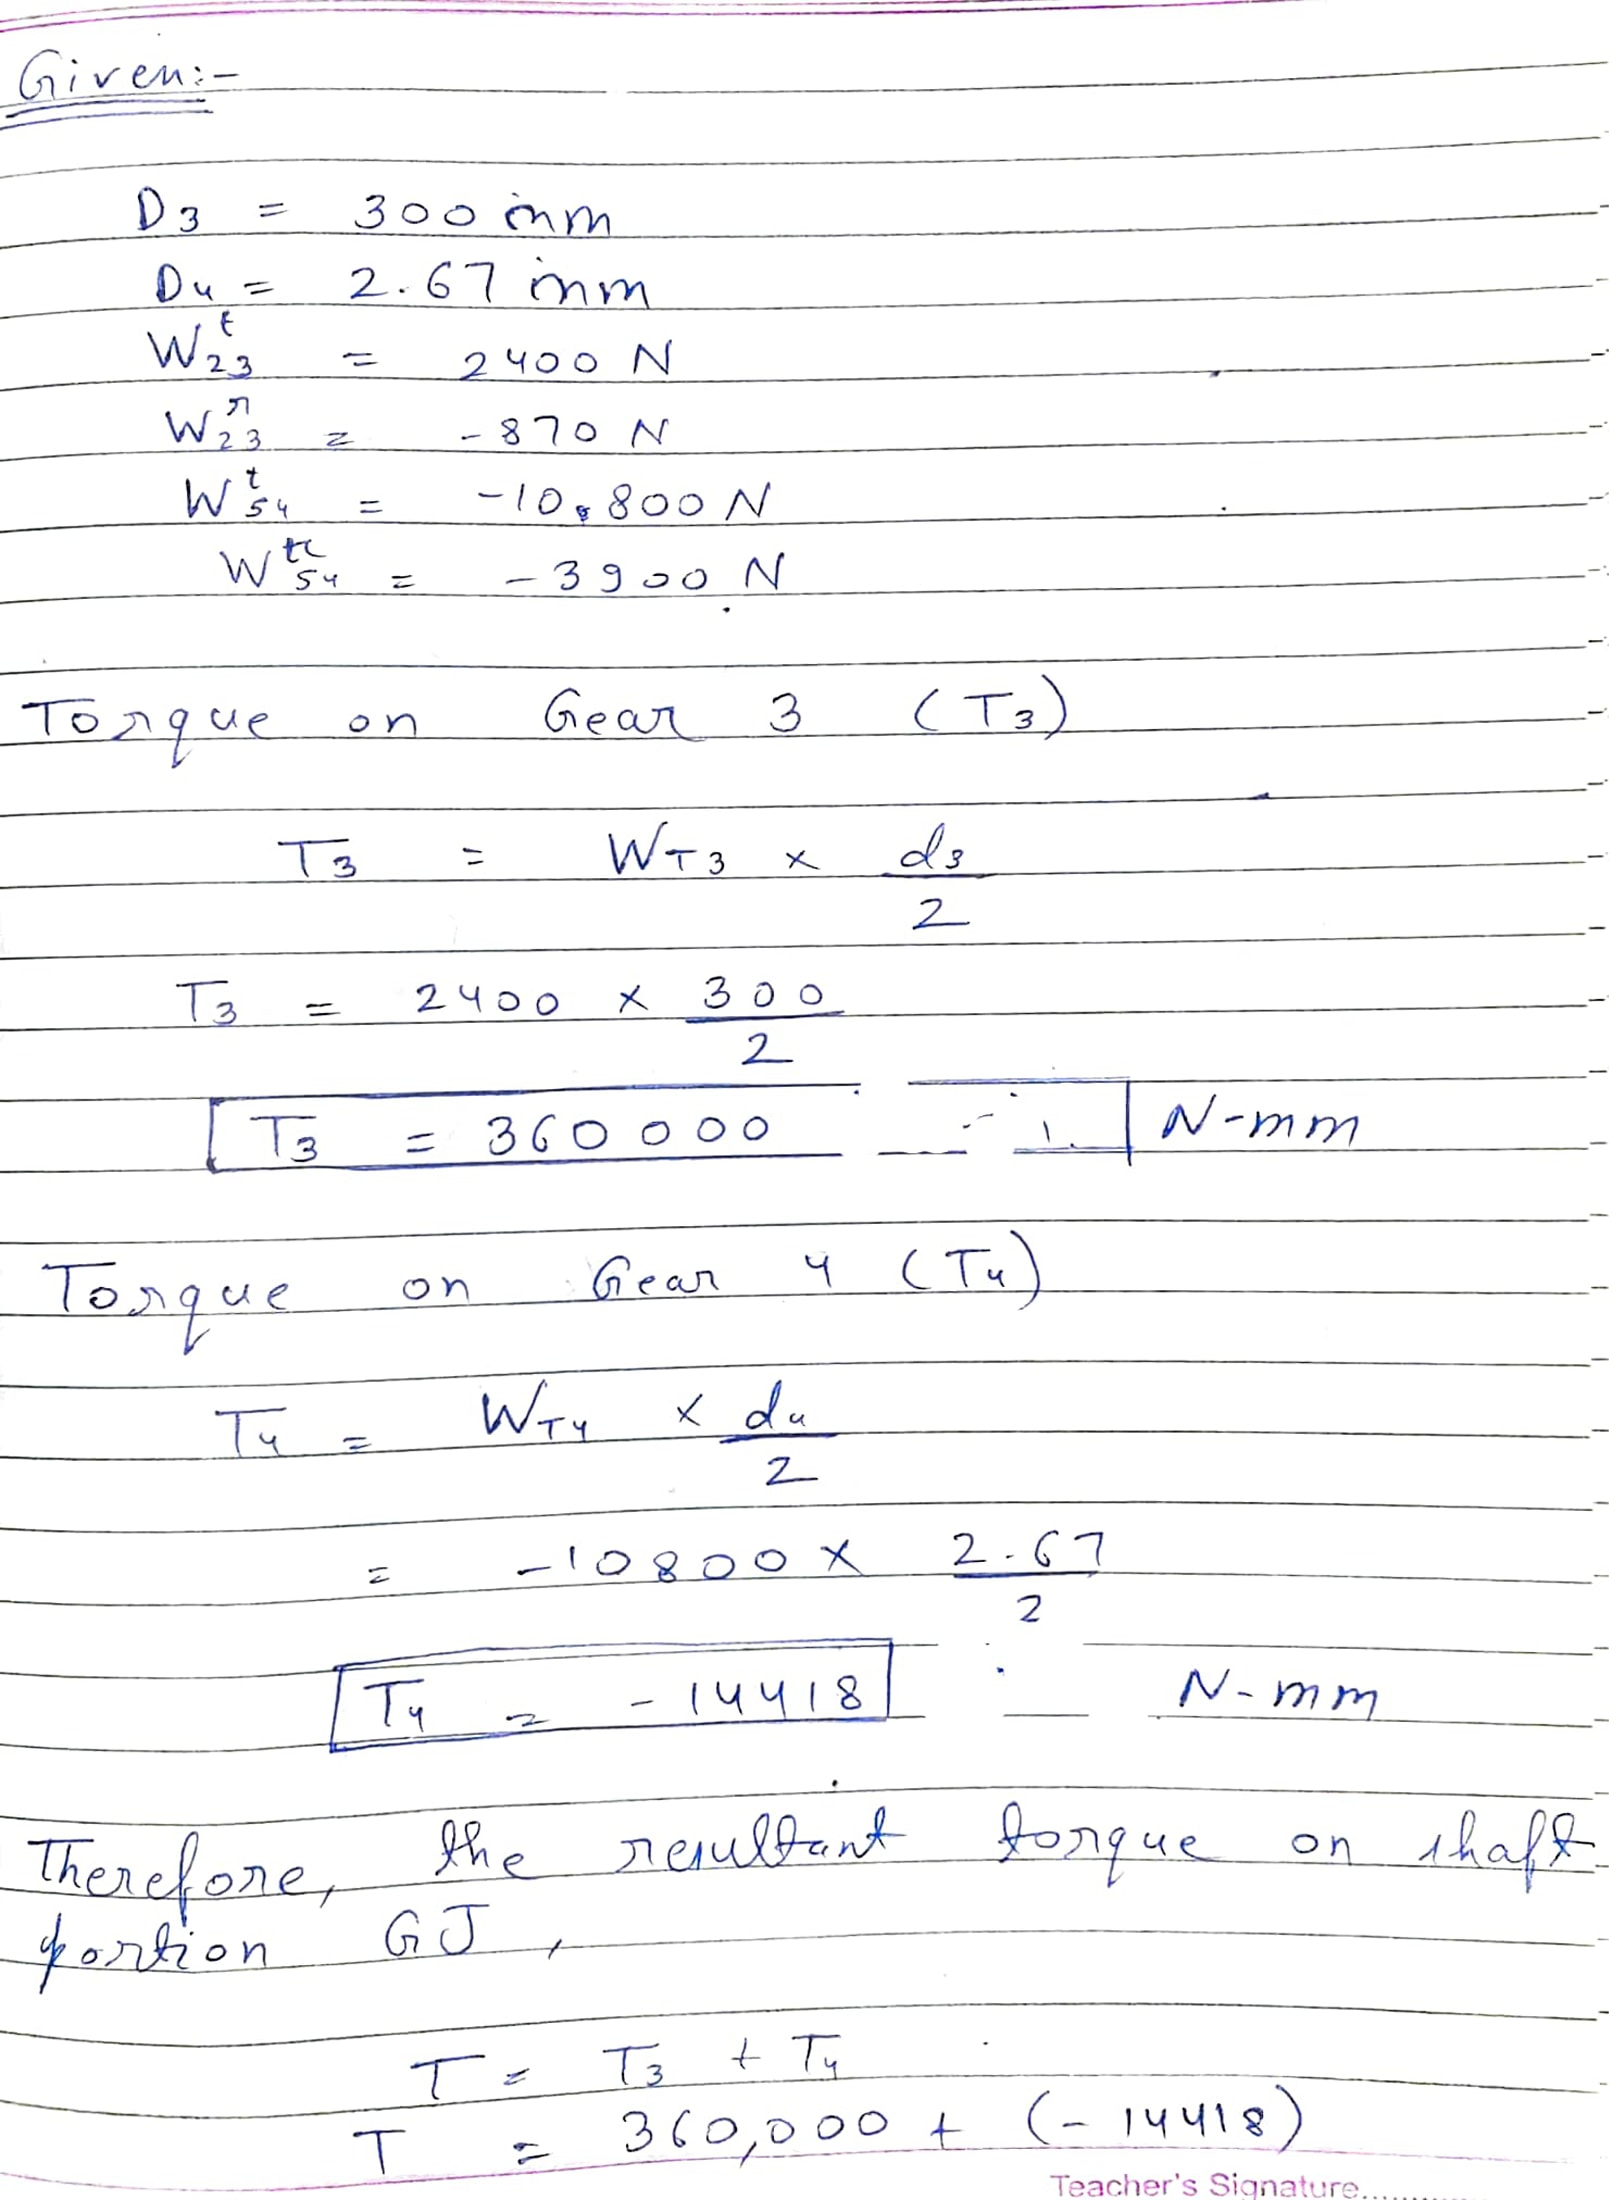 Given:-
D3 = 300 mm
D4 = 2.67 mm
W^t_23 = 2400 N
W^r_23 = -870 N
W^t_54 = -10,800 N
W^tr_54 = -3900 N
Torque on Gear 3 (T3)
T3 = WT3 × d3/2
T3 = 2400 × 300/2
T3 = 360000 N-mm
Torque on Gear 4 (T4)
T4 = WT4 × d4/2
= -10800 × 2.67/2
T4 = -14418 N-mm
Therefore, the resultant torque on shaft
portion GJ,
T = T3 + T4
T = 360,000 + (-14418)
Teacher's Signature..............